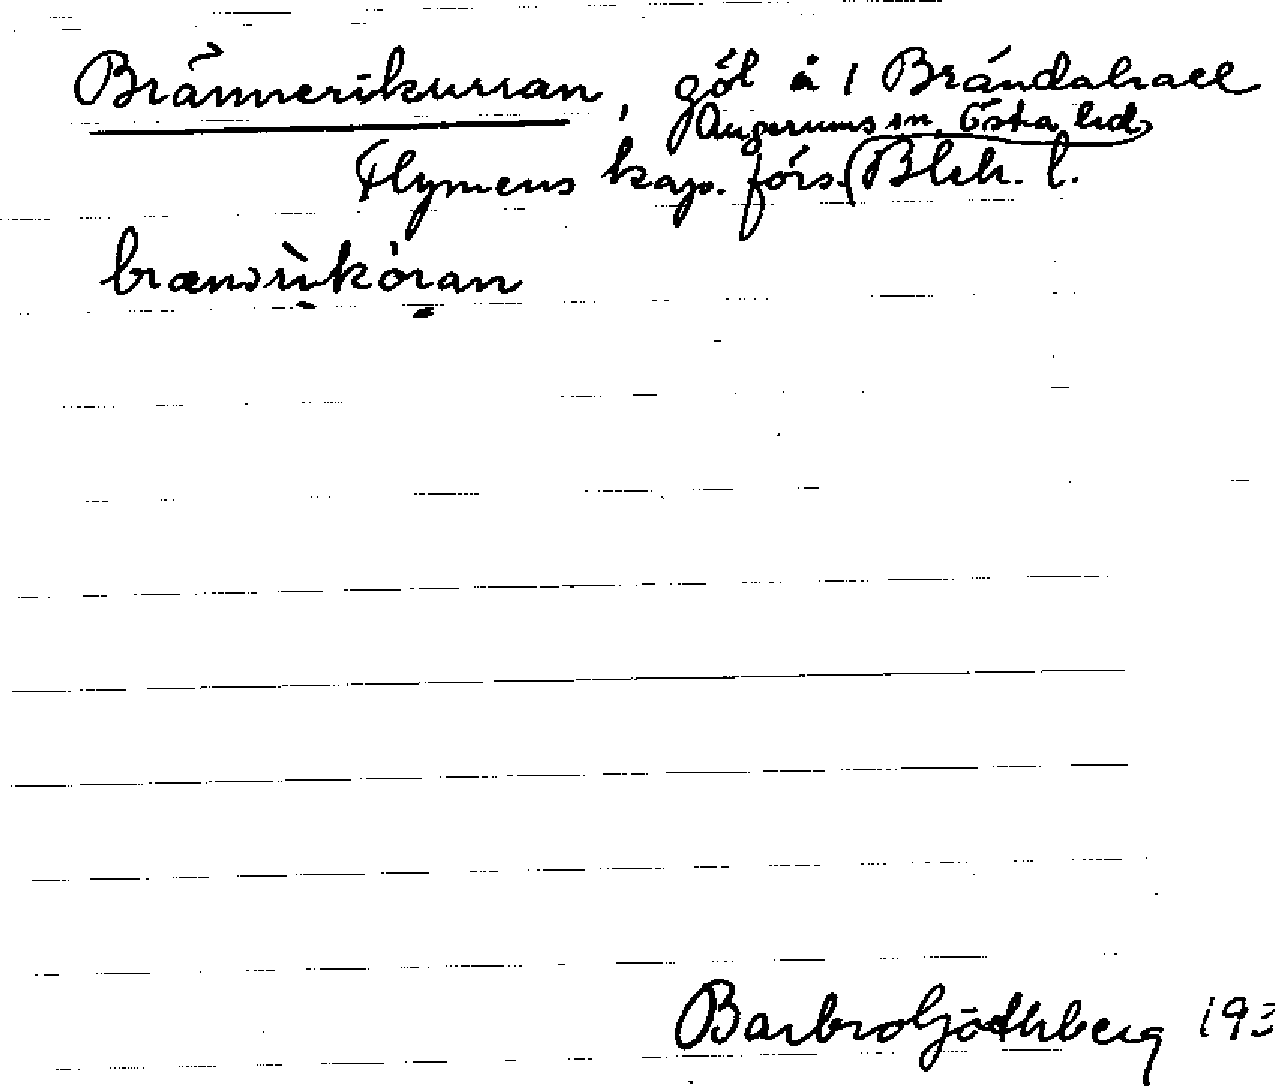 Brännerikurran, göl å 1 Brändahall
Augerums sn, Östra hd,
Flymens kap. förs. Blek. l.
brænɔrikóran
Barbro Göthberg 193